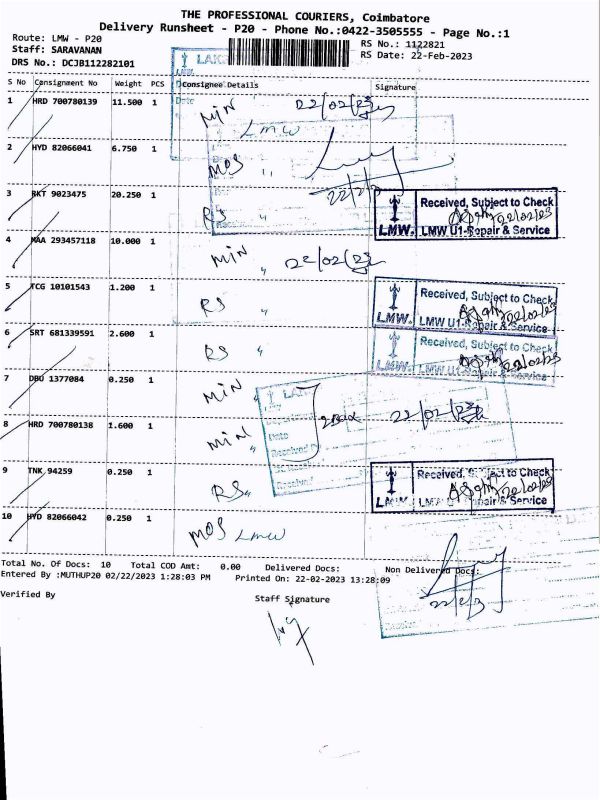 THE PROFESSIONAL COURIERS, Coimbatore
Delivery Runsheet - P20 - Phone No.:0422-3505555 - Page No.:1
Route: LMW - P20
RS No.: 1122821
Staff: SARAVANAN
RS Date: 22-Feb-2023
DRS No.: DCJB112282101
S No Consignment No Weight PCS Consignee Details Signature
1 HRD 700780139 11.500 1 MIN 22/02/23
LMW
2 HYD 82066041 6.750 1 MOS "
22/2/23
3 RKT 9023475 20.250 1 RS "
Received, Subject to Check
22/02/23
LMW. LMW U1-Repair & Service
4 MAA 293457118 10.000 1 MIN " 22/02/23
5 TCG 10101543 1.200 1 RS "
Received, Subject to Check
22/02/23
LMW. LMW U1-Repair & Service
6 SRT 681339591 2.600 1 RS "
Received, Subject to Check
22/02/23
LMW. LMW U1-Repair & Service
7 DBU 1377084 0.250 1 MIN "
22/02/23
8 HRD 700780138 1.600 1 MIN "
9 TNK 94259 0.250 1 RS "
Received, Subject to Check
22/02/23
LMW. LMW U1-Repair & Service
10 HYD 82066042 0.250 1 MOS LMW
Total No. Of Docs: 10 Total COD Amt: 0.00 Delivered Docs: Non Delivered Docs:
Entered By :MUTHUP20 02/22/2023 1:28:03 PM Printed On: 22-02-2023 13:28:09
22/2/23
Verified By
Staff Signature